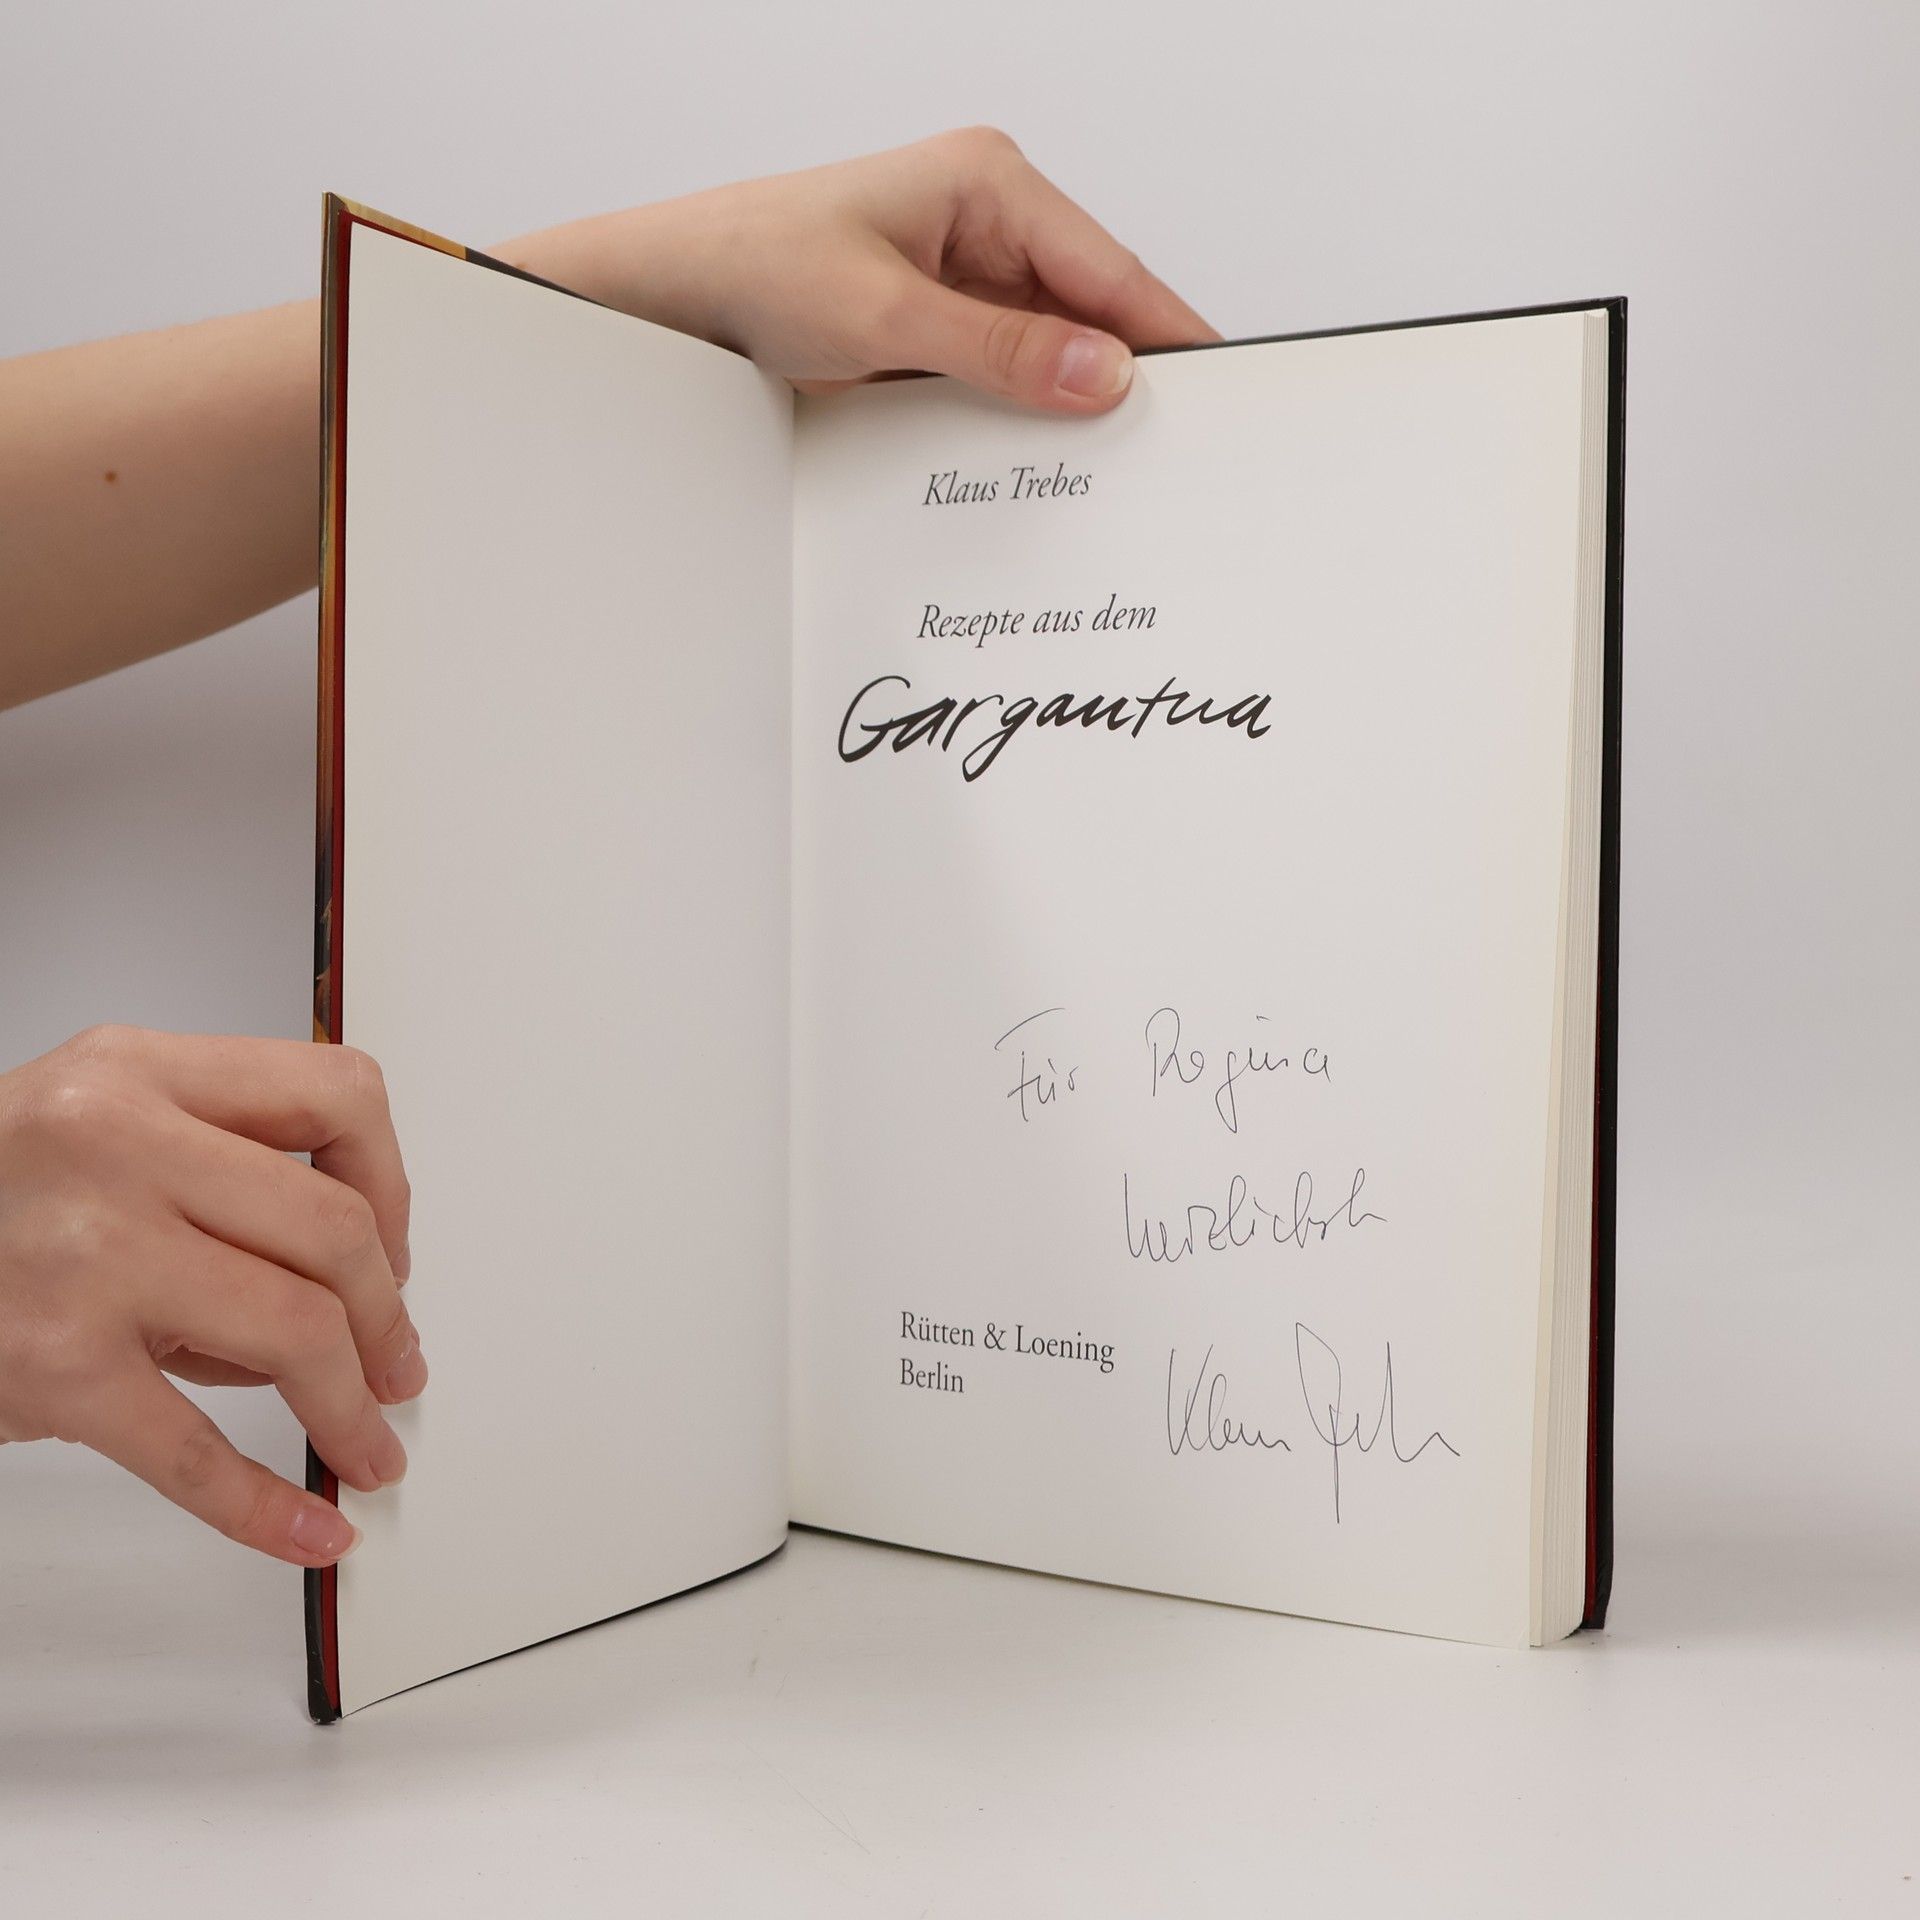 Klaus Trebes
Rezepte aus dem
Gargantua
Für Regina
herzlichst
Rütten & Loening
Berlin
Klaus Trebes